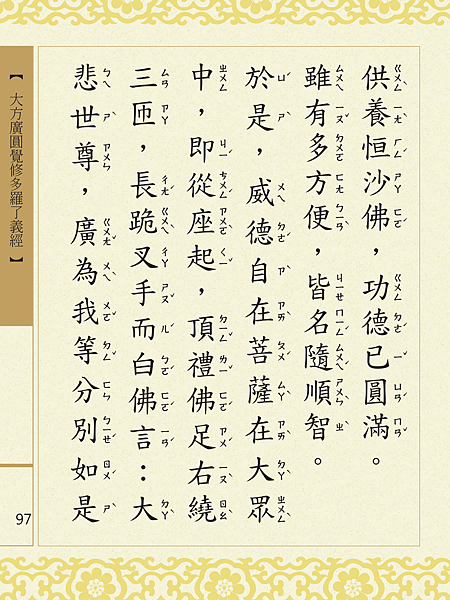 供養恒沙佛，功德已圓滿。
雖有多方便，皆名隨順智。
於是，威德自在菩薩在大眾
中，即從座起，頂禮佛足右繞
三匝，長跪叉手而白佛言：大
悲世尊，廣為我等分別如是
【大方廣圓覺修多羅了義經】
97